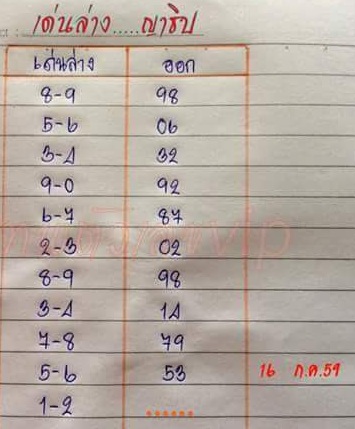 เด่นล่าง.....ญาธิป
เด่นล่าง ออก
8-9 98
5-6 06
3-4 32
9-0 92
6-7 87
2-3 02
8-9 98
3-4 14
7-8 79
5-6 53 16 ก.ค.59
1-2 ......